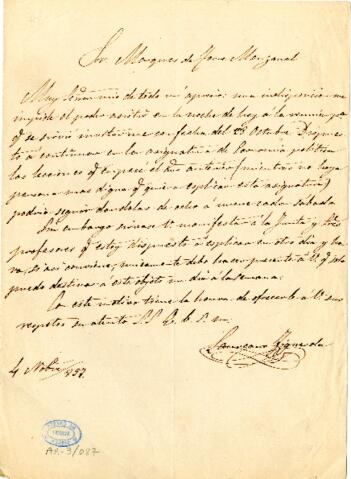 Sr. Marques de Casa Manzanal
Muy Señor mio de todo mi aprecio: una indisposicion me
impide el poder asistir en la noche de hoy a la reunion pª
qe se sirvió invitarme con fecha del 28 Octubre. Dispues-
to á continuar en la asignatura de Economia politica
las lecciones qe empecé el año anterior (mientras no haya
persona mas digna qe quiera esplicar esta asignatura)
podria seguir dandolas de ocho a nueve cada sabado.
Sin embargo sirvase V. manifestar á la Junta y Sres
profesores qe estoy dispuesto á esplicar en otro dia y ho-
ra, si asi conviene, unicamente debo hacer presente á V. qe solo
puedo destinar a este objeto un dia á la semana.
Con este motivo tiene la honra de ofrecerle á V. sus
respetos su atento S.S. Q. B. S. M.
Laureano Figuerola
4 Nobre 857.
AP-3/087